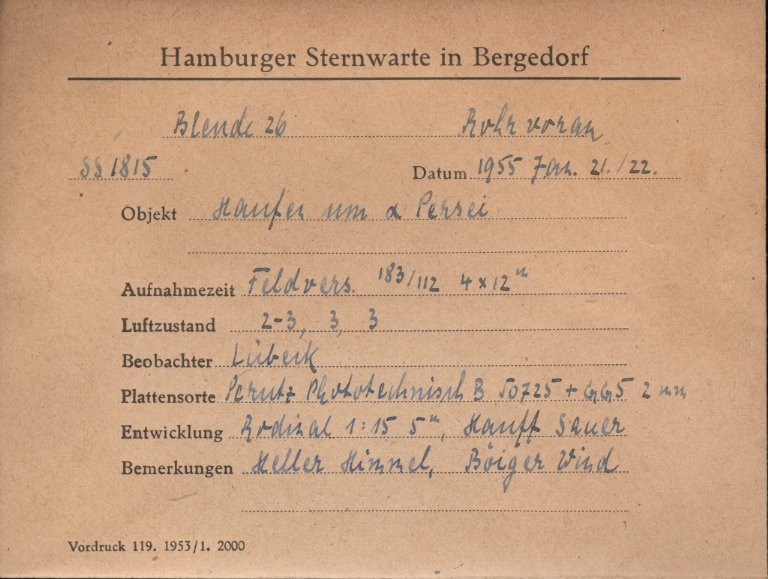 Hamburger Sternwarte in Bergedorf
Blende 26 Rohr voran
SS 1815 Datum 1955 Jan. 21./22.
Objekt Haufen um α Persei
Aufnahmezeit Feldvers. 183/112 4 x 12ᵐ
Luftzustand 2-3, 3, 3
Beobachter Lübeck
Plattensorte Perutz Phototechnisch B 50725 + GG5 2 mm
Entwicklung Rodinal 1:15 5ᵐ, Hauff Sauer
Bemerkungen Heller Himmel, Böiger Wind
Vordruck 119. 1953/1. 2000